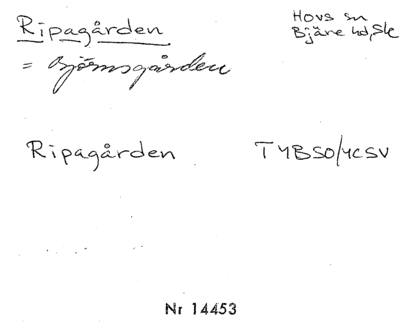 Ripagården
Hovs sn
Bjäre hd, Sk
= Björnsgården
Ripagården T4BSO/4CSV
Nr 14453